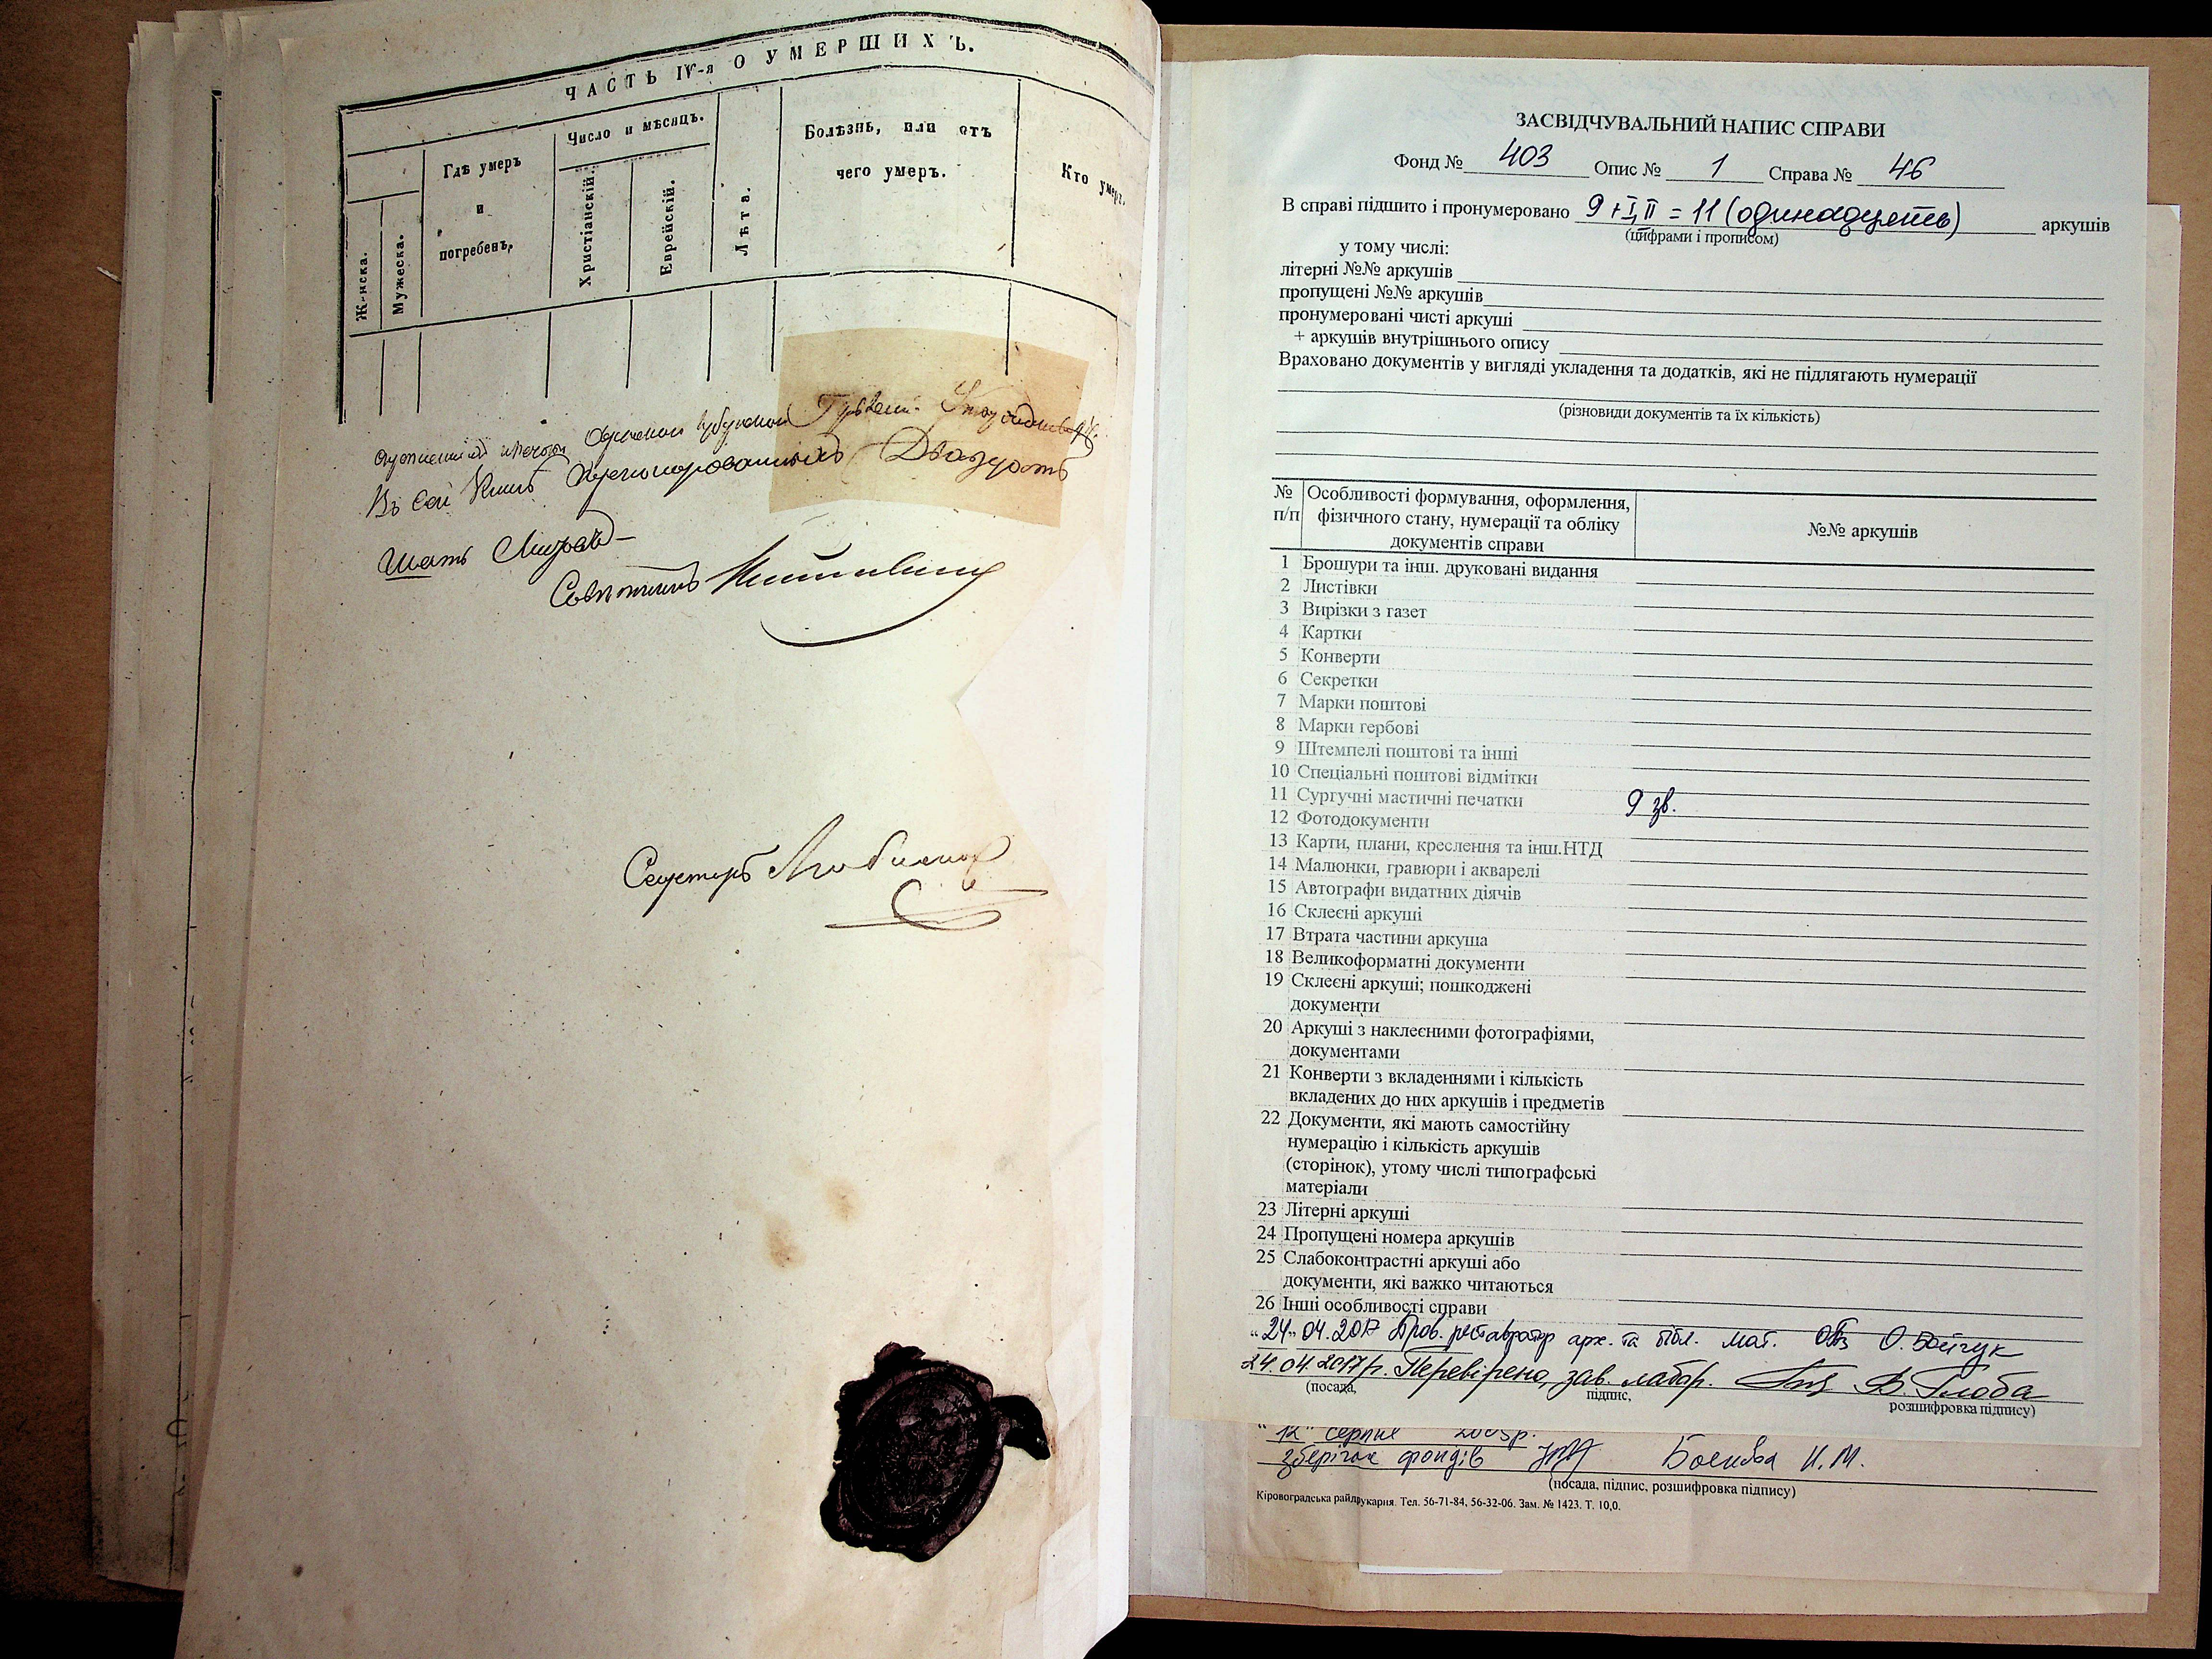 ЧАСТЬ IV-я О УМЕРШИХЪ.
Ж-нска.
Мужеска.
Гдѣ умеръ
и
погребенъ,
Число и мѣсяцъ.
Христіанскій.
Еврейскій.
Лѣта.
Болѣзнь, или отъ
чего умеръ.
Кто умеръ.
Въ сей Книгѣ Пренумерованныхъ Двадцать
Шесть Листовъ
Совѣтникъ
Секретарь
ЗАСВІДЧУВАЛЬНИЙ НАПИС СПРАВИ
Фонд № 403 Опис № 1 Справа № 46
В справі підшито і пронумеровано 9 + I, II = 11 (одинадцять) аркушів
(цифрами і прописом)
у тому числі:
літерні №№ аркушів
пропущені №№ аркушів
пронумеровані чисті аркуші
+ аркушів внутрішнього опису
Враховано документів у вигляді укладення та додатків, які не підлягають нумерації
(різновиди документів та їх кількість)
№ п/п Особливості формування, оформлення, фізичного стану, нумерації та обліку документів справи №№ аркушів
1 Брошури та інш. друковані видання
2 Листівки
3 Вирізки з газет
4 Картки
5 Конверти
6 Секретки
7 Марки поштові
8 Марки гербові
9 Штемпелі поштові та інші
10 Спеціальні поштові відмітки
11 Сургучні мастичні печатки 9 зв.
12 Фотодокументи
13 Карти, плани, креслення та інш.НТД
14 Малюнки, гравюри і акварелі
15 Автографи видатних діячів
16 Склеєні аркуші
17 Втрата частини аркуша
18 Великоформатні документи
19 Склеєні аркуші; пошкоджені
документи
20 Аркуші з наклеєними фотографіями,
документами
21 Конверти з вкладеннями і кількість
вкладених до них аркушів і предметів
22 Документи, які мають самостійну
нумерацію і кількість аркушів
(сторінок), утому числі типографські
матеріали
23 Літерні аркуші
24 Пропущені номера аркушів
25 Слабоконтрастні аркуші або
документи, які важко читаються
26 Інші особливості справи
"24" 04.2017 Пров. реставратор арх. та бібл. мат. О. Бойчук
24.04.2017р. Перевірено, зав. лабор. В. Глоба
(посада, підпис, розшифровка підпису)
"12" серпня
зберігач фондів Н.М.
(посада, підпис, розшифровка підпису)
Кіровоградська райдрукарня. Тел. 56-71-84, 56-32-06. Зам. № 1423. Т. 10,0.